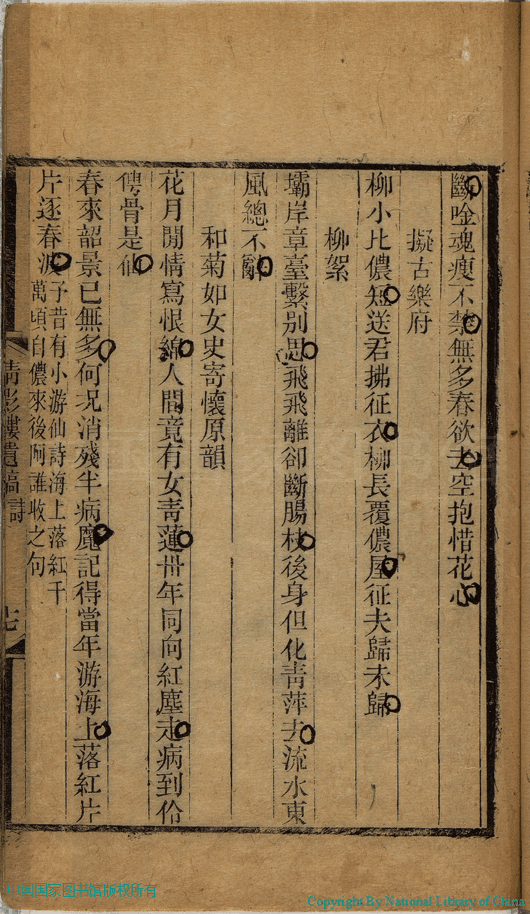 斷唫魂瘦不禁無多春欲去空抱惜花心
擬古樂府
柳小比儂短送君拂征衣柳長覆儂屋征夫歸未歸
柳絮
壩岸章臺繫別思飛飛離卻斷腸枝後身但化青萍去流水東
風總不辭
和菊如女史寄懷原韻
花月閒情寫恨綿人間竟有女青蓮卅年同向紅塵走病到伶
俜骨是仙
春來韶景已無多何况消殘半病魔記得當年游海上落紅片
片逐春波予昔有小游仙詩海上落紅千
萬頃自儂來後阿誰收之句
詩
七
中国国家图书馆版权所有
Copyright By National Library of China